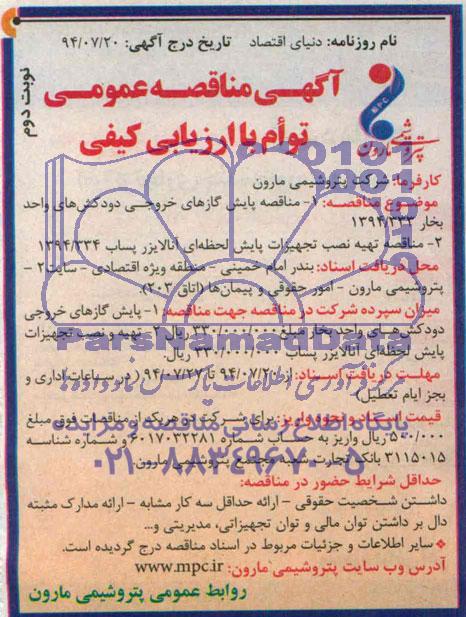 نام روزنامه: دنیای اقتصاد    تاریخ درج آگهی: ۹۴/۰۷/۲۰
نوبت دوم
آگهی مناقصه عمومی
توأم با ارزیابی کیفی
MPC
پتروشیمی مارون
کارفرما: شرکت پتروشیمی مارون
موضوع مناقصه: ۱- مناقصه پایش گازهای خروجی دودکش‌های واحد
بخار ۱۳۹۴/۳۳۳
۲- مناقصه تهیه نصب تجهیزات پایش لحظه‌ای آنالایزر پساب ۱۳۹۴/۳۳۴
محل دریافت اسناد: بندر امام خمینی - منطقه ویژه اقتصادی - سایت۲ -
پتروشیمی مارون - امور حقوقی و پیمان‌ها (اتاق ۲۰۳)
میزان سپرده شرکت در مناقصه جهت مناقصه: ۱- پایش گازهای خروجی
دودکش‌های واحد بخار مبلغ ۳۳۰/۰۰۰/۰۰۰ ریال ۲- تهیه و نصب تجهیزات
پایش لحظه‌ای آنالایزر پساب ۳۳۰/۰۰۰/۰۰۰ ریال.
مهلت دریافت اسناد: از ۹۴/۰۷/۲۰ تا ۹۴/۰۷/۲۷ ( در ساعات اداری و
بجز ایام تعطیل)
قیمت اسناد و نحوه واریز: برای شرکت در هریک از مناقصات فوق مبلغ
۵۰۰/۰۰۰ ریال واریز به حساب شماره ۶۰۱۷۰۳۲۲۸۱ و شماره شناسه
۳۱۱۵۰۱۵ بانک تجارت شعبه مجتمع پتروشیمی مارون.
حداقل شرایط حضور در مناقصه:
داشتن شخصیت حقوقی - ارائه حداقل سه کار مشابه - ارائه مدارک مثبته
دال بر داشتن توان مالی و توان تجهیزاتی، مدیریتی و...
❖ سایر اطلاعات و جزئیات مربوط در اسناد مناقصه درج گردیده است.
آدرس وب سایت پتروشیمی مارون: www.mpc.ir
روابط عمومی پتروشیمی مارون
ParsNamadData
مرکز فرآوری اطلاعات پارس نماد داده ها
پایگاه اطلاع رسانی مناقصه و مزایده
۰۲۱-۸۸۳۴۹۶۷۰-۵